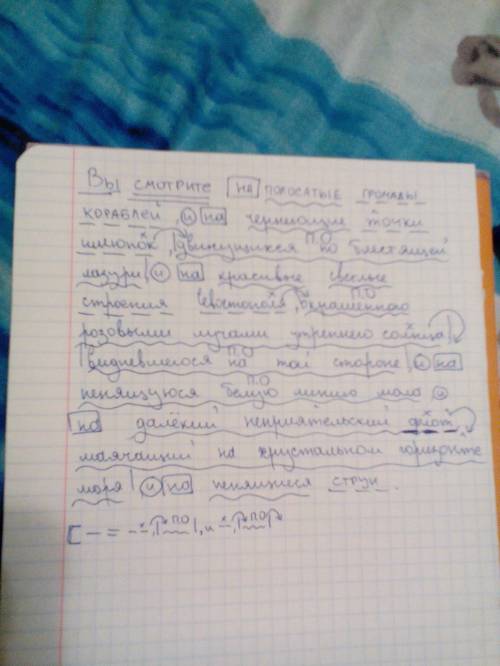 Вы смотрите на полосатые громады
кораблей, и на чернеющие точки
шлюпок, движущихся П.О по блестящей
лазури, и на красивые светлые
строения Севастополя, окрашенного П.О
розовыми лучами утреннего солнца,
видневшегося на П.О той стороне, и на
пенящуюся белую П.О линию мола и
на далёкий неприятельский флот,
маячащий на хрустальном горизонте
моря, и на пенящиеся струи.
[ — = П.О , и П.О